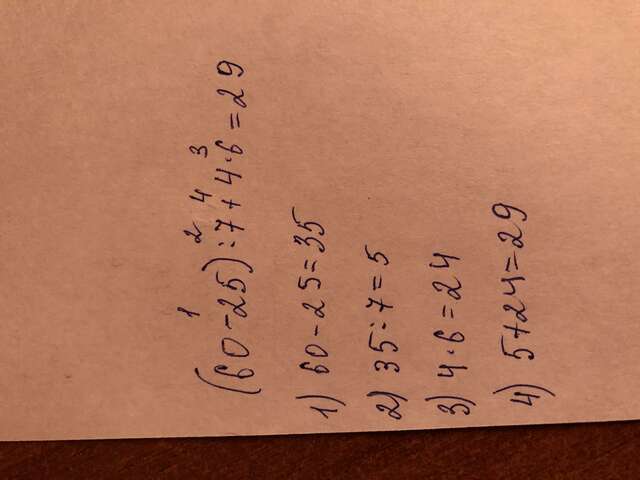 1 2 4 3
(60-25):7+4·6=29
1) 60-25=35
2) 35:7=5
3) 4·6=24
4) 5+24=29